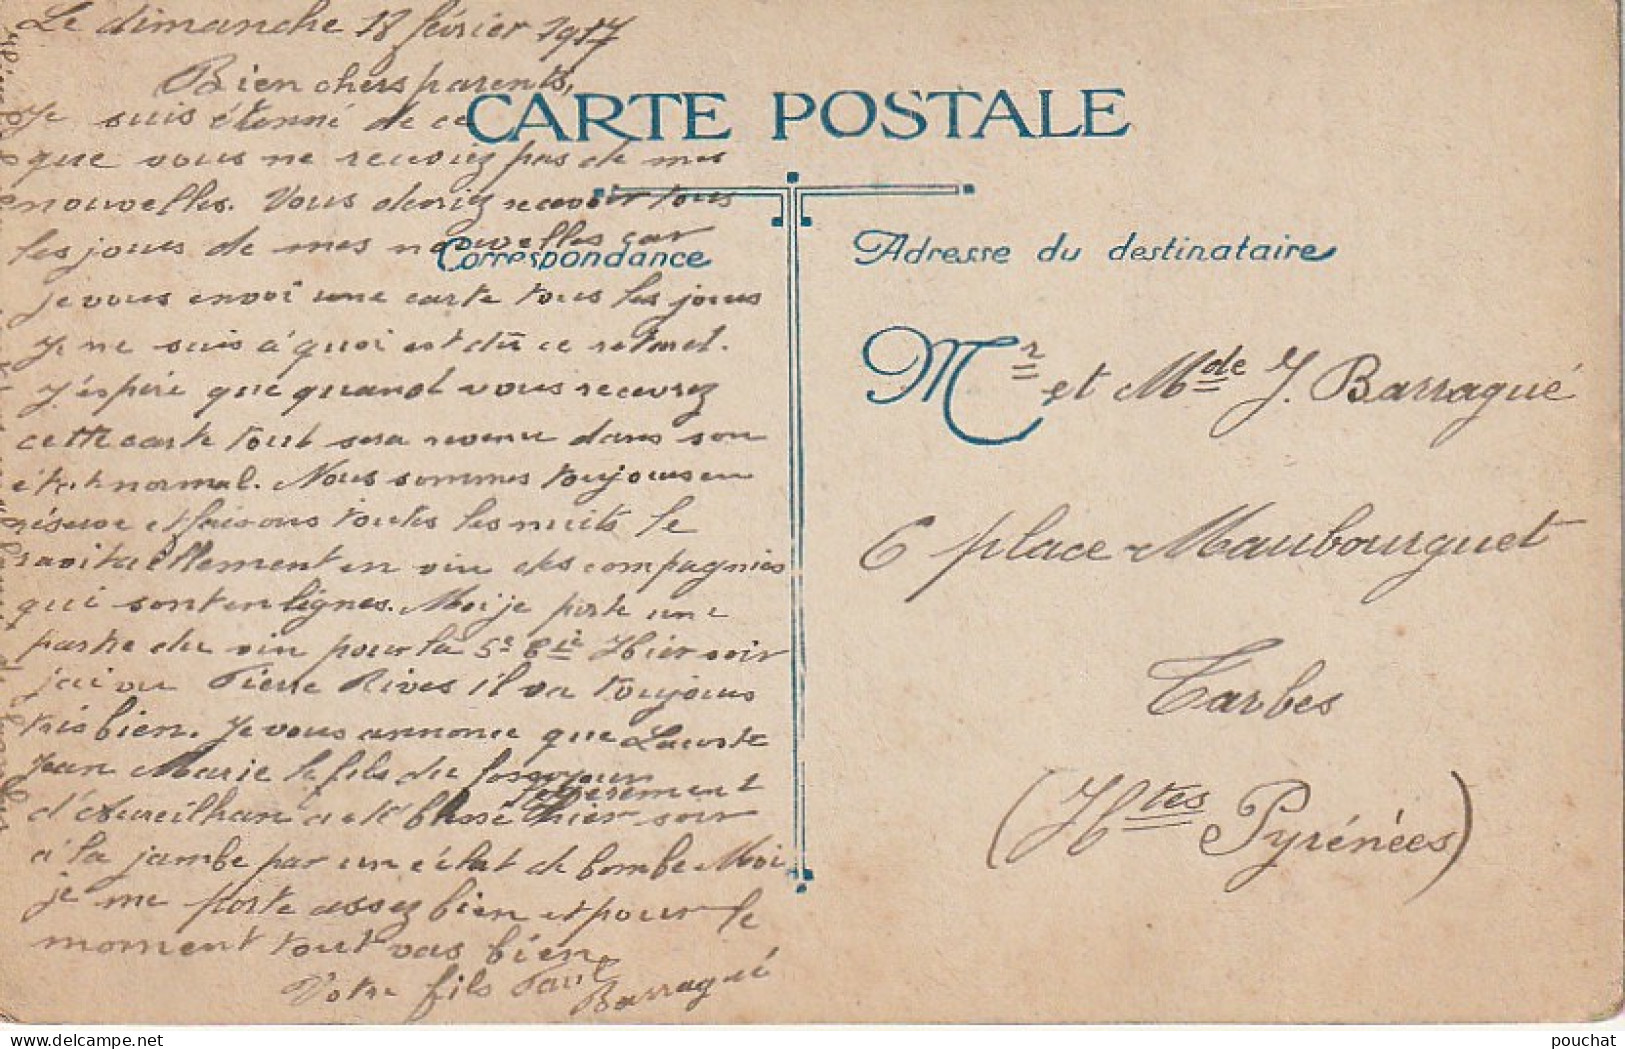 Le dimanche 18 février 1917
Bien chers parents,
Je suis étonné de ce
que vous ne receviez pas de mes
nouvelles. Vous devriez recevoir tous
les jours de mes nouvelles car
je vous envoi une carte tous les jours
Je ne sais à quoi est dû ce retard.
J'éspère que quand vous recevrez
cette carte tout sera revenu dans son
état normal. Nous sommes toujours en
réserve et faisons toutes les nuits le
ravitaillement en vin des compagnies
qui sont en lignes. Moi je porte une
partie du vin pour la 5e Cie Hier soir
j'ai vu Pierre Rives il va toujours
très bien. Je vous annonce que Lacoste
Jean Marie le fils du
d'Aureilhan a été blessé légèrement hier soir
à la jambe par un éclat de bombe Moi
je me porte assez bien et pour le
moment tout vas bien.
Votre fils Paul
Barragué
CARTE POSTALE
Correspondance
Adresse du destinataire
Mr et Mde J. Barragué
6 place Maubourguet
Tarbes
(Htes Pyrénées)
pouchat